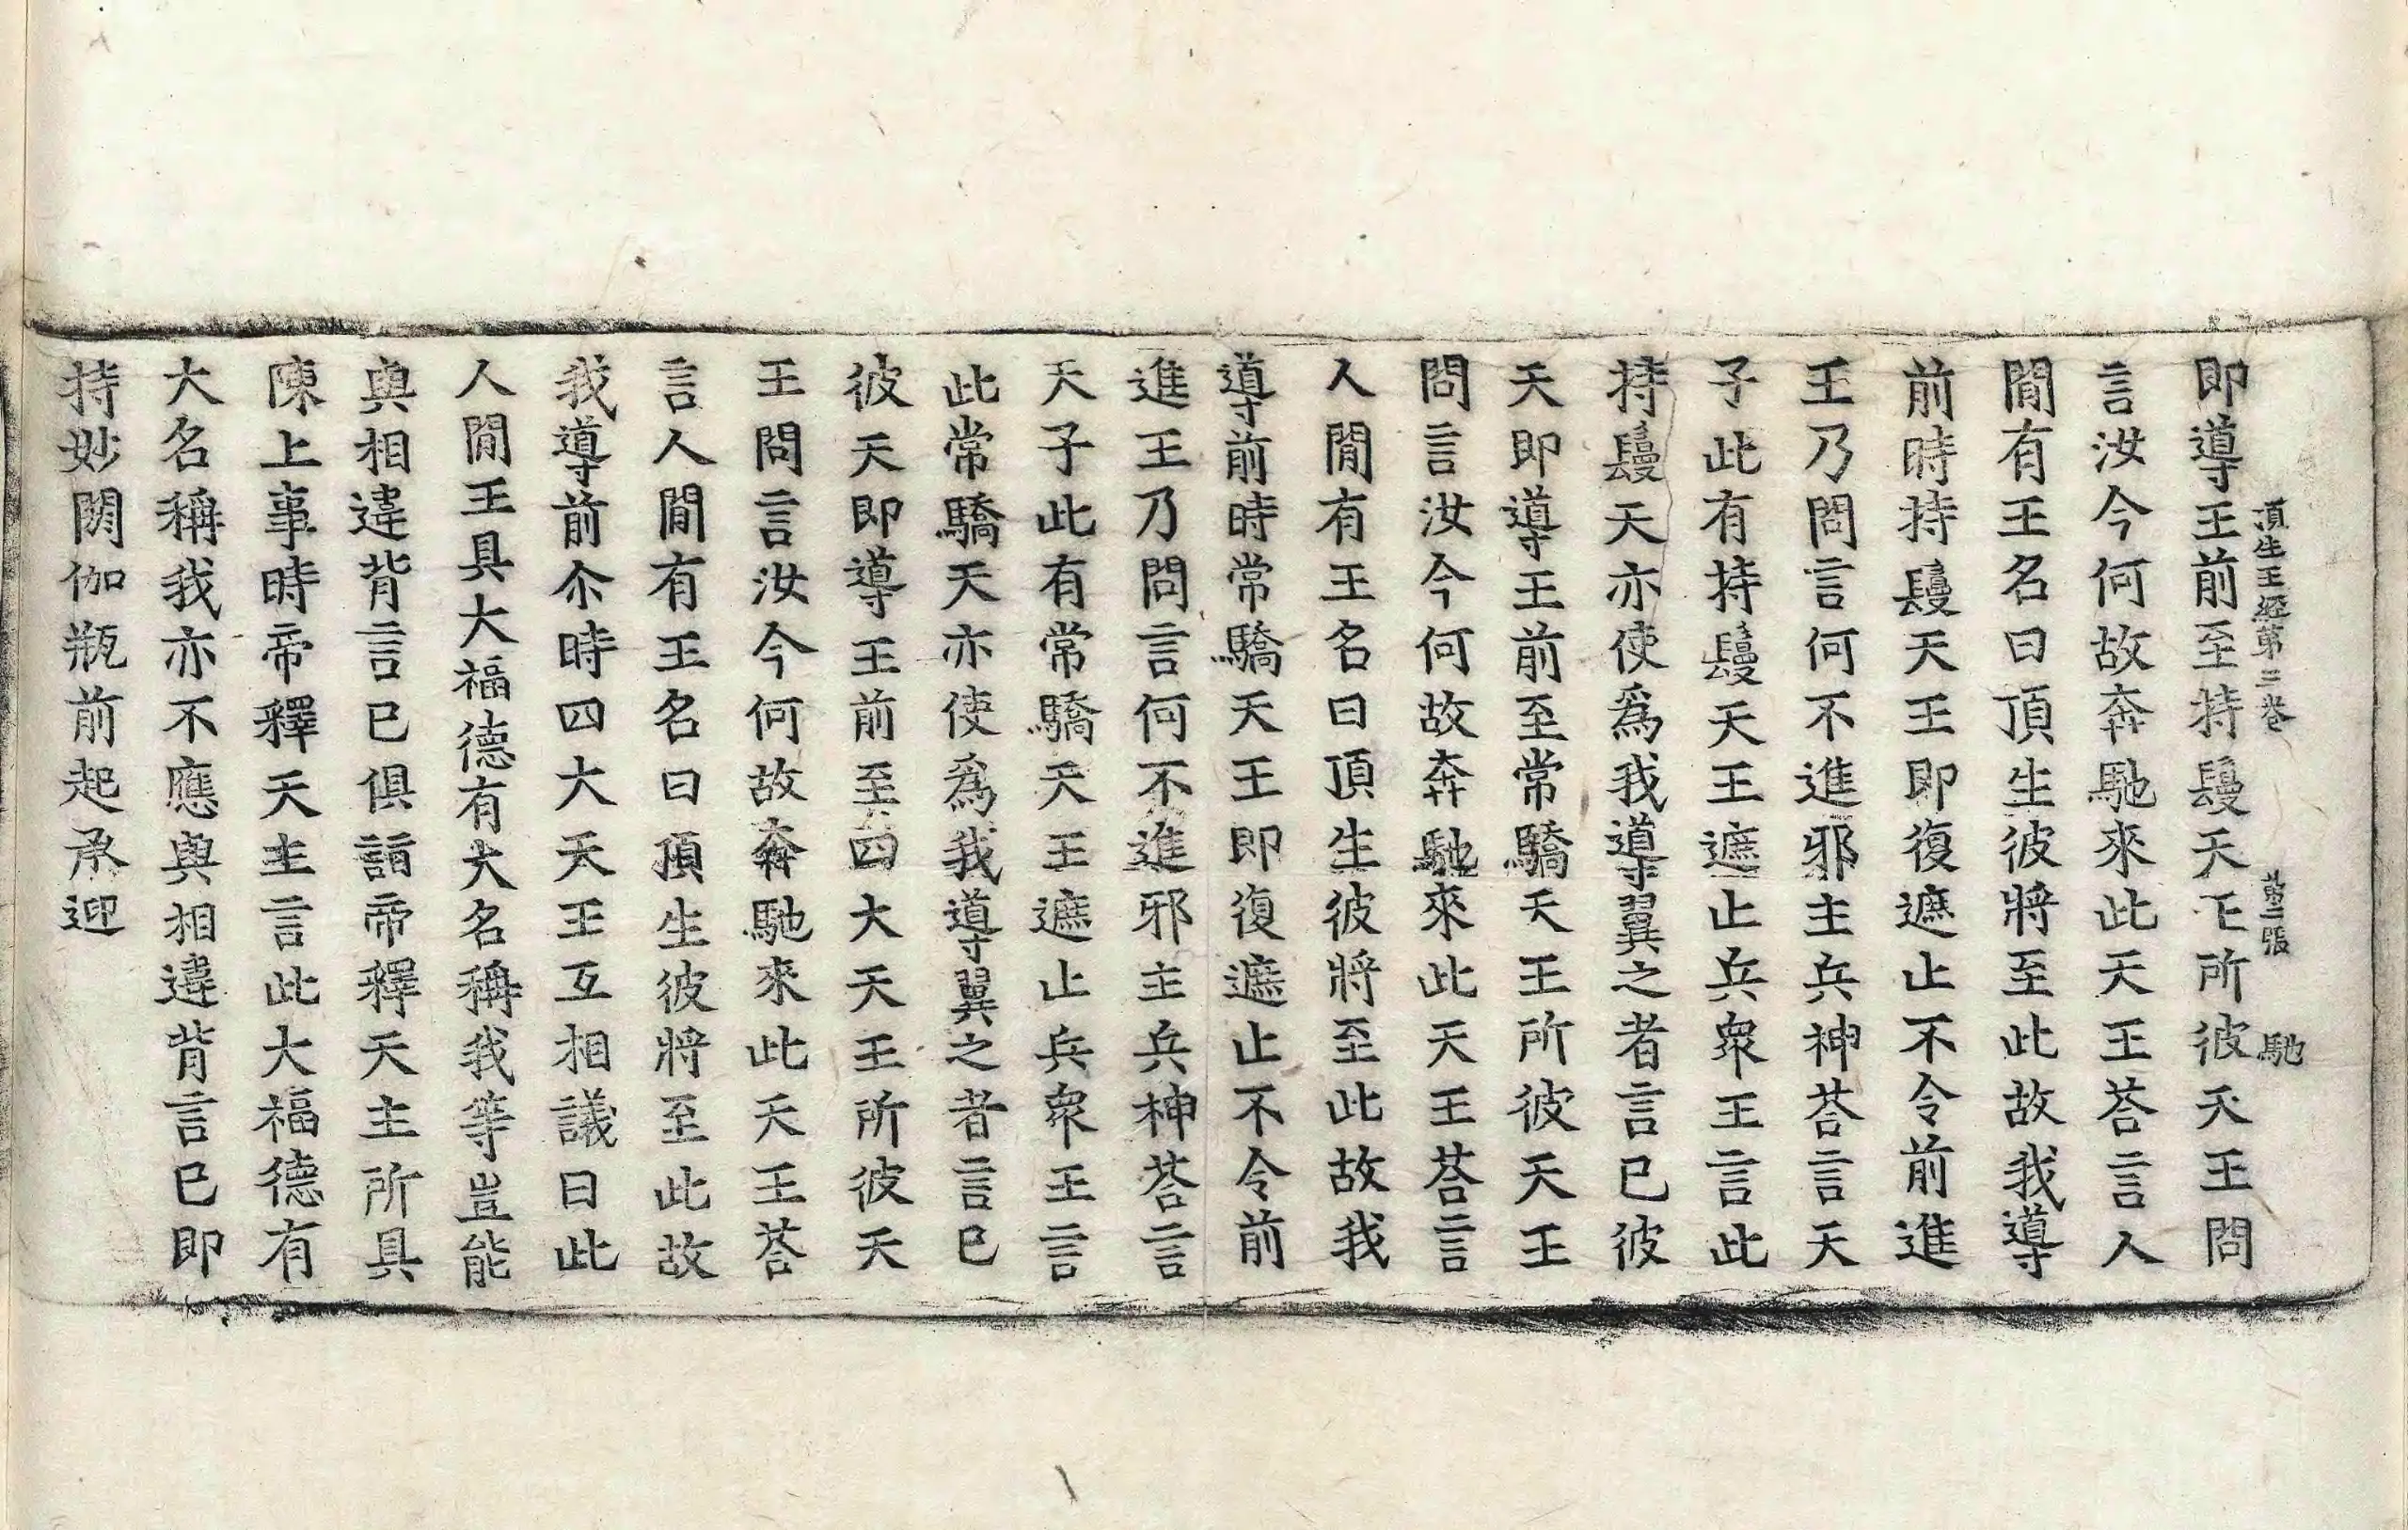 頂生王經第三卷 第二張 馳
即導王前至持鬘天王所彼天王問
言汝今何故奔馳來此天王荅言人
閒有王名曰頂生彼將至此故我導
前時持鬘天王即復遮止不令前進
王乃問言何不進邪主兵神荅言天
子此有持鬘天王遮止兵衆王言此
持鬘天亦使爲我導翼之者言已彼
天即導王前至常驕天王所彼天王
問言汝今何故奔馳來此天王荅言
人閒有王名曰頂生彼將至此故我
導前時常驕天王即復遮止不令前
進王乃問言何不進邪主兵神荅言
天子此有常驕天王遮止兵衆王言
此常驕天亦使爲我導翼之者言已
彼天即導王前至四大天王所彼天
王問言汝今何故奔馳來此天王荅
言人閒有王名曰頂生彼將至此故
我導前尒時四大天王互相議曰此
人閒王具大福德有大名稱我等豈能
與相違背言已俱詣帝釋天主所具
陳上事時帝釋天主言此大福德有
大名稱我亦不應與相違背言已即
持妙閼伽瓶前起承迎